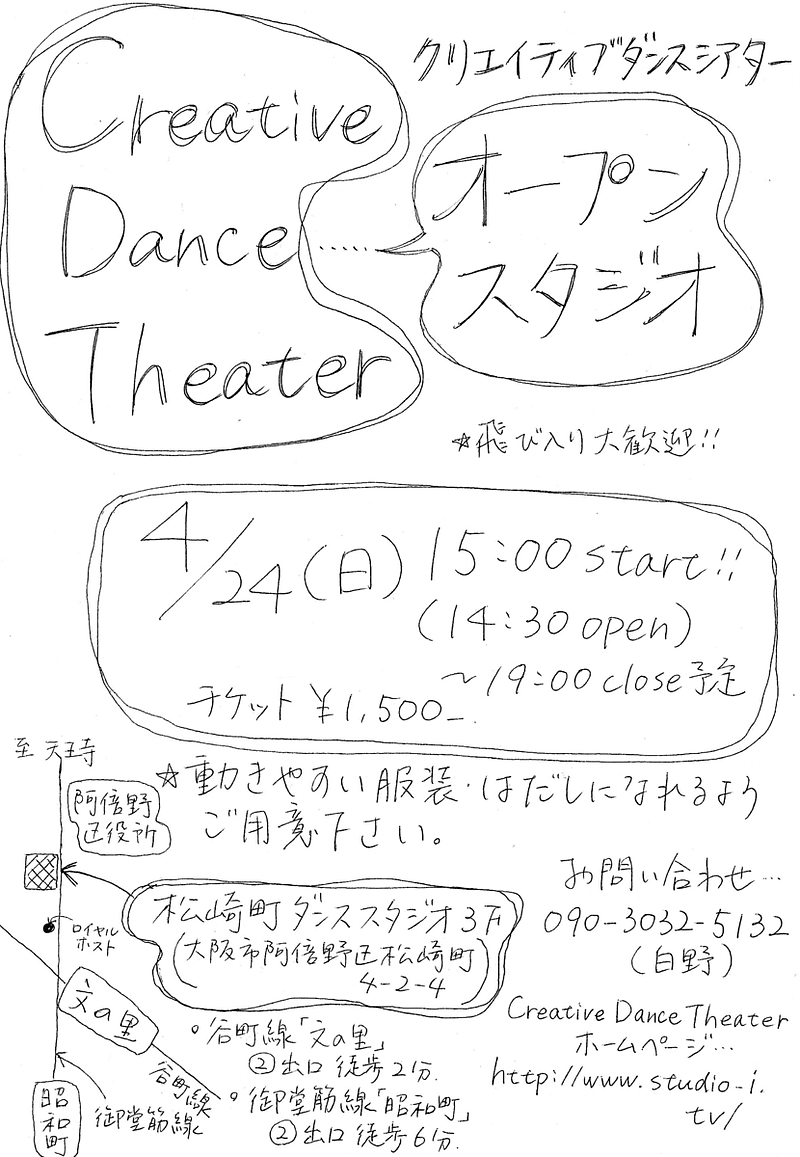 クリエイティブダンスシアター
Creative
Dance
Theater
……
オープン
スタジオ
☆飛び入り大歓迎!!
4/24(日) 15:00 start!!
(14:30 open)
~19:00 close予定
チケット ¥1,500-
至 天王寺
☆動きやすい服装・はだしになれるよう
ご用意下さい。
阿倍野
区役所
松崎町ダンススタジオ3F
(大阪市阿倍野区松崎町
4-2-4)
ロイヤル
ホスト
文の里
谷町線
昭和町
御堂筋線
○谷町線「文の里」
②出口 徒歩2分.
○御堂筋線「昭和町」
②出口 徒歩6分.
お問い合わせ…
090-3032-5132
(白野)
Creative Dance Theater
ホームページ…
http://www.studio-i.
tv/